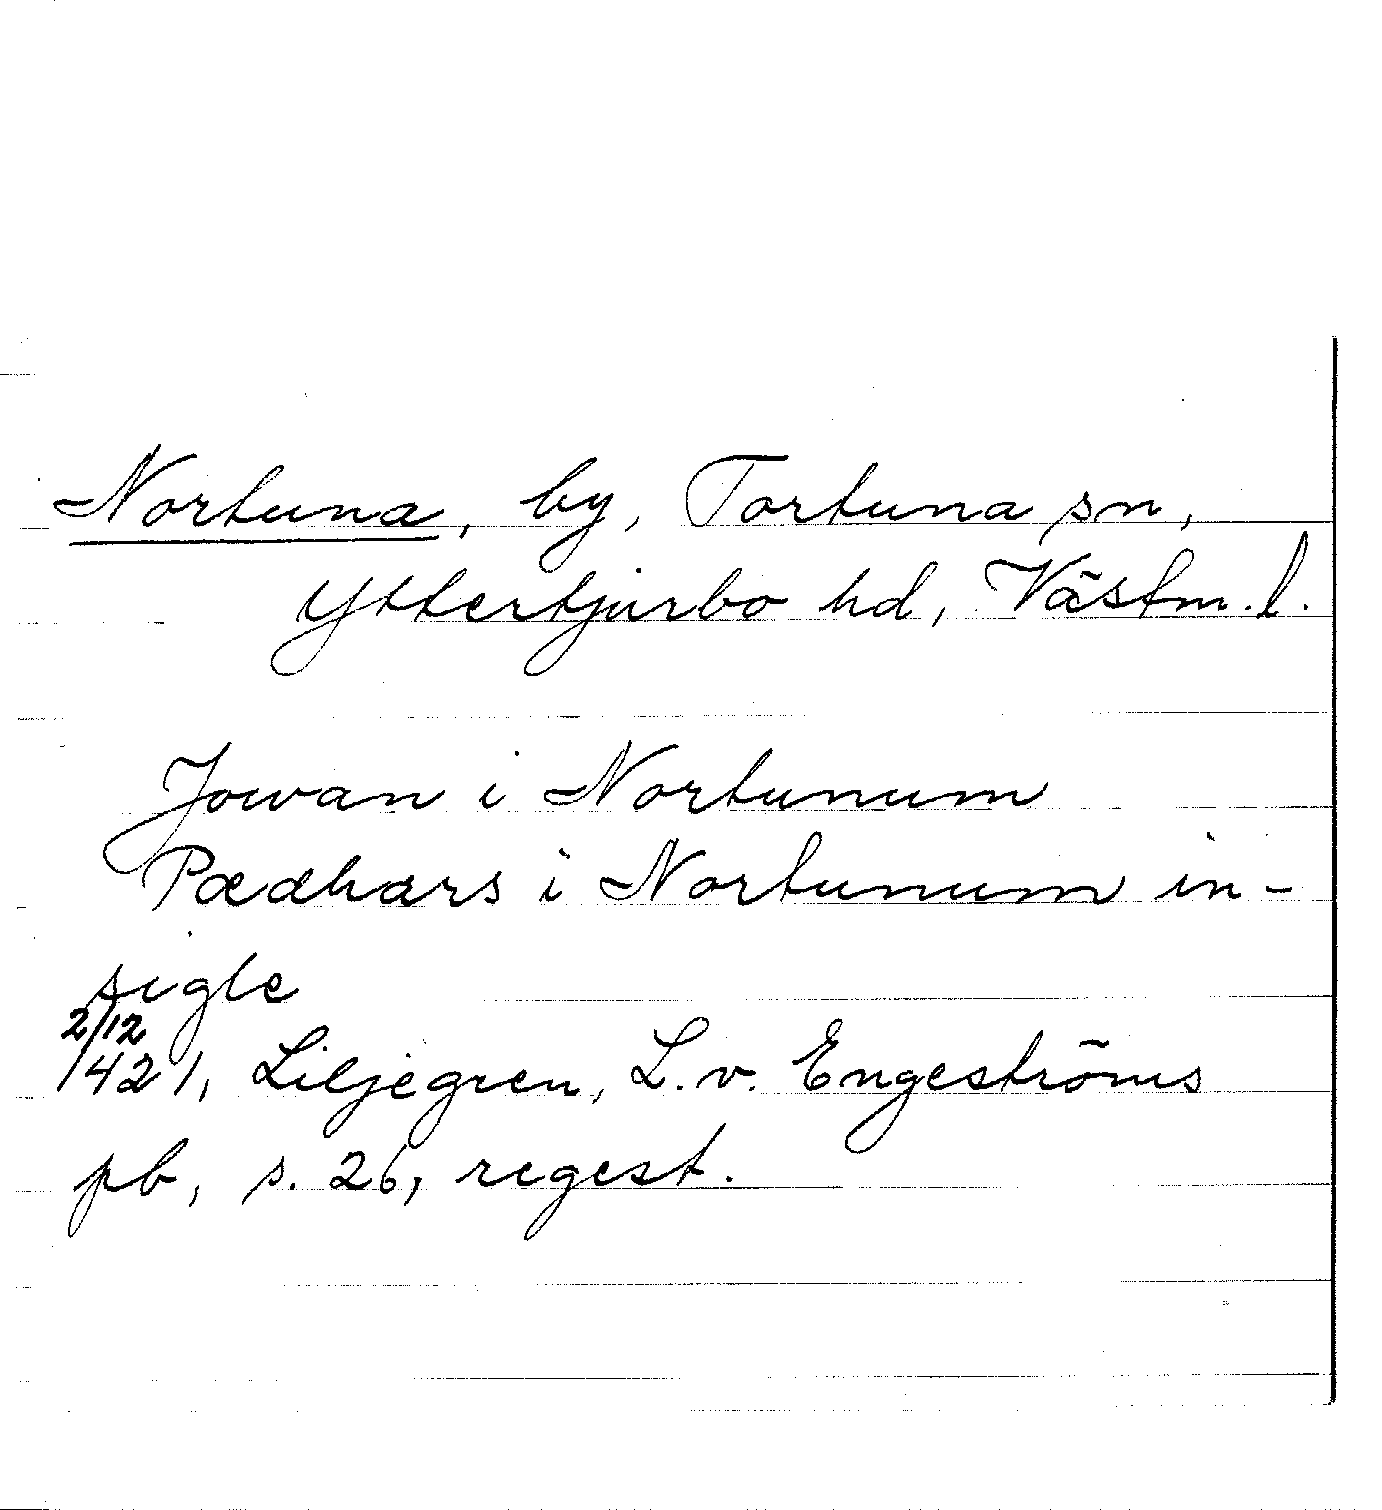 Nortuna, by, Tortuna sn,
Yttertjurbo hd, Västm. l.
Jowan i Nortunum
Pædhars i Nortunum in-
sigle
2/12
1421, Liljegren, L. v. Engeströms
pb, s. 26, regest.